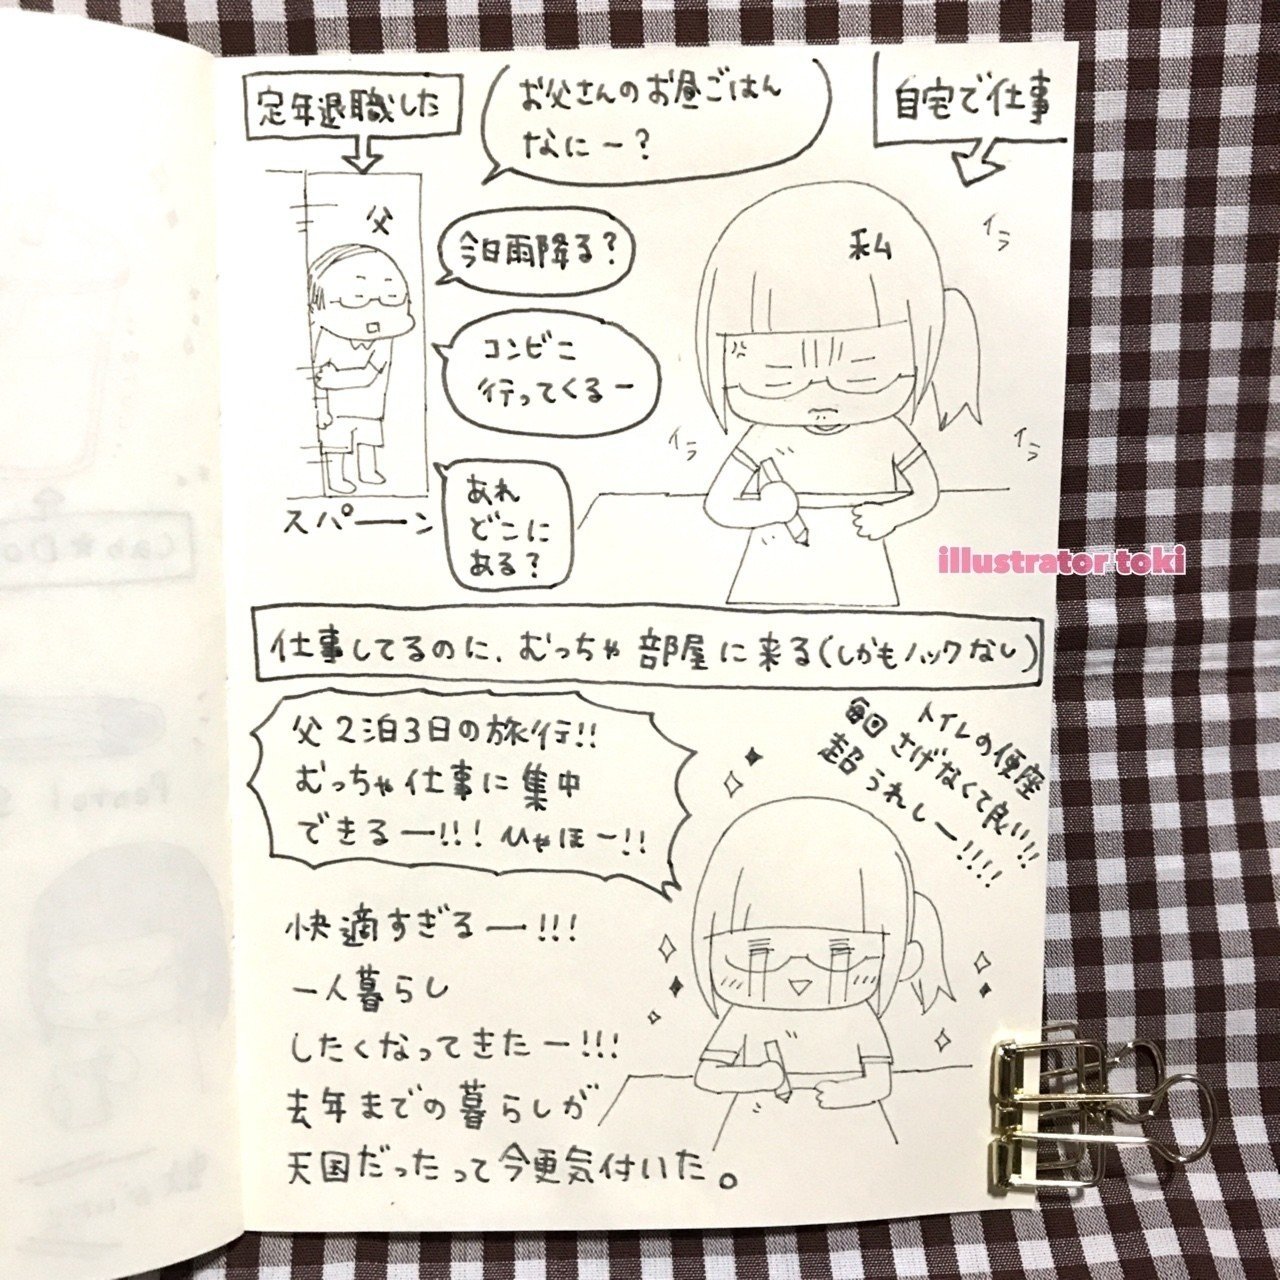 定年退職した
お父さんのお昼ごはん
なにー?
自宅で仕事
父
今日雨降る?
私
イラ
コンビニ
行ってくるー
イラ
イラ
あれ
どこに
ある?
スパーン
illustrator toki
仕事してるのに、むっちゃ部屋に来る(しかもノックなし)
父2泊3日の旅行!!
むっちゃ仕事に集中
できるー!!! ひゃほー!!
トイレの便座
毎回さげなくて良い!!
超うれしー!!!!
快適すぎるー!!!
一人暮らし
したくなってきたー!!!
去年までの暮らしが
天国だったって今更気付いた。